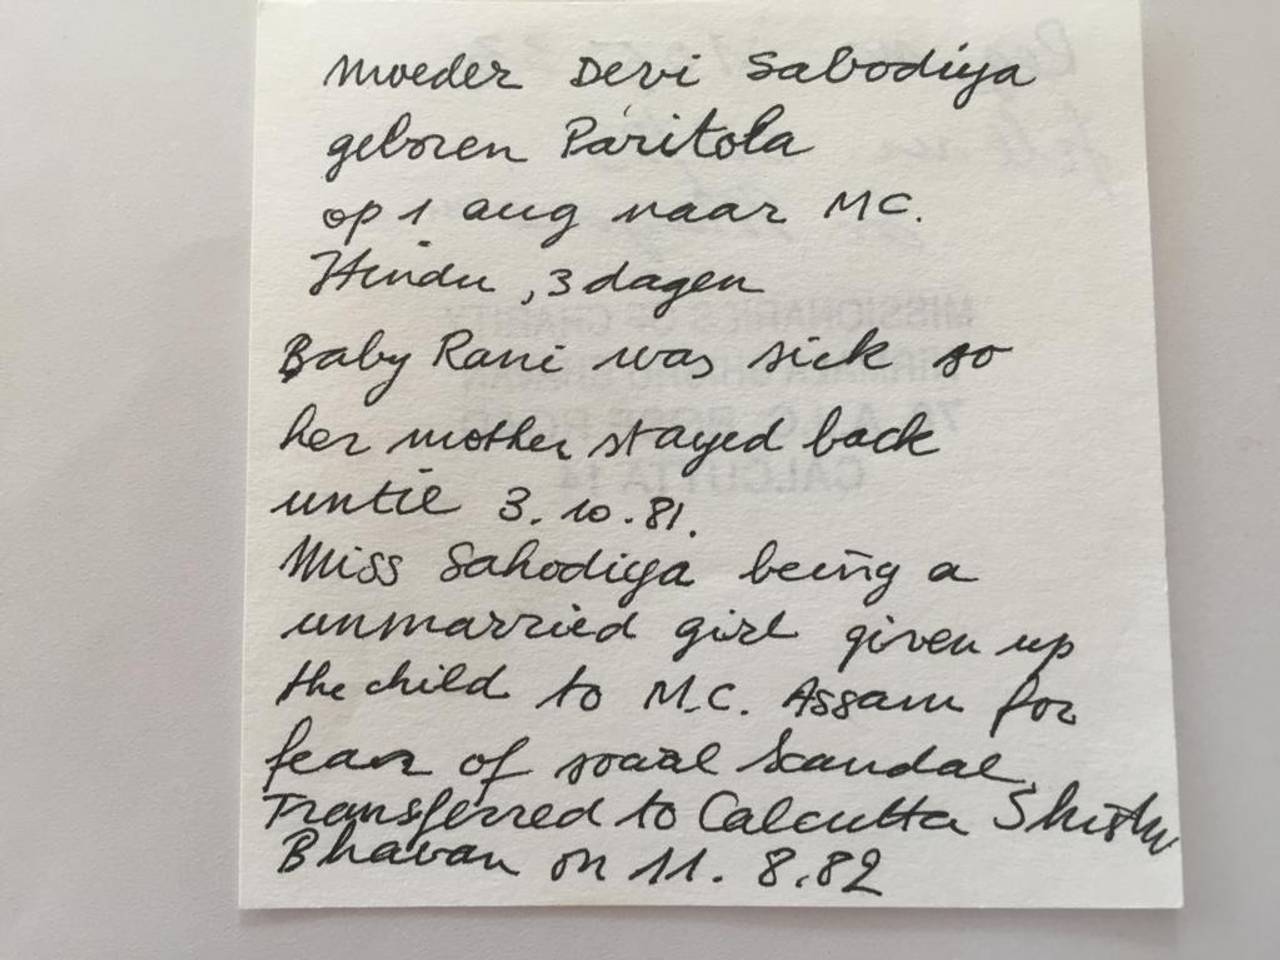 Moeder Devi Sabodiya
geboren Paritola
op 1 aug naar MC.
Hindu, 3 dagen
Baby Rani was sick so
her mother stayed back
until 3.10.81.
Miss Sahodiya being a
unmarried girl given up
the child to M.C. Assam for
fear of social Scandal
Transferred to Calcutta Shishu
Bhavan on 11.8.82
MISSIONARIES OF CHARITY
CALCUTTA 14